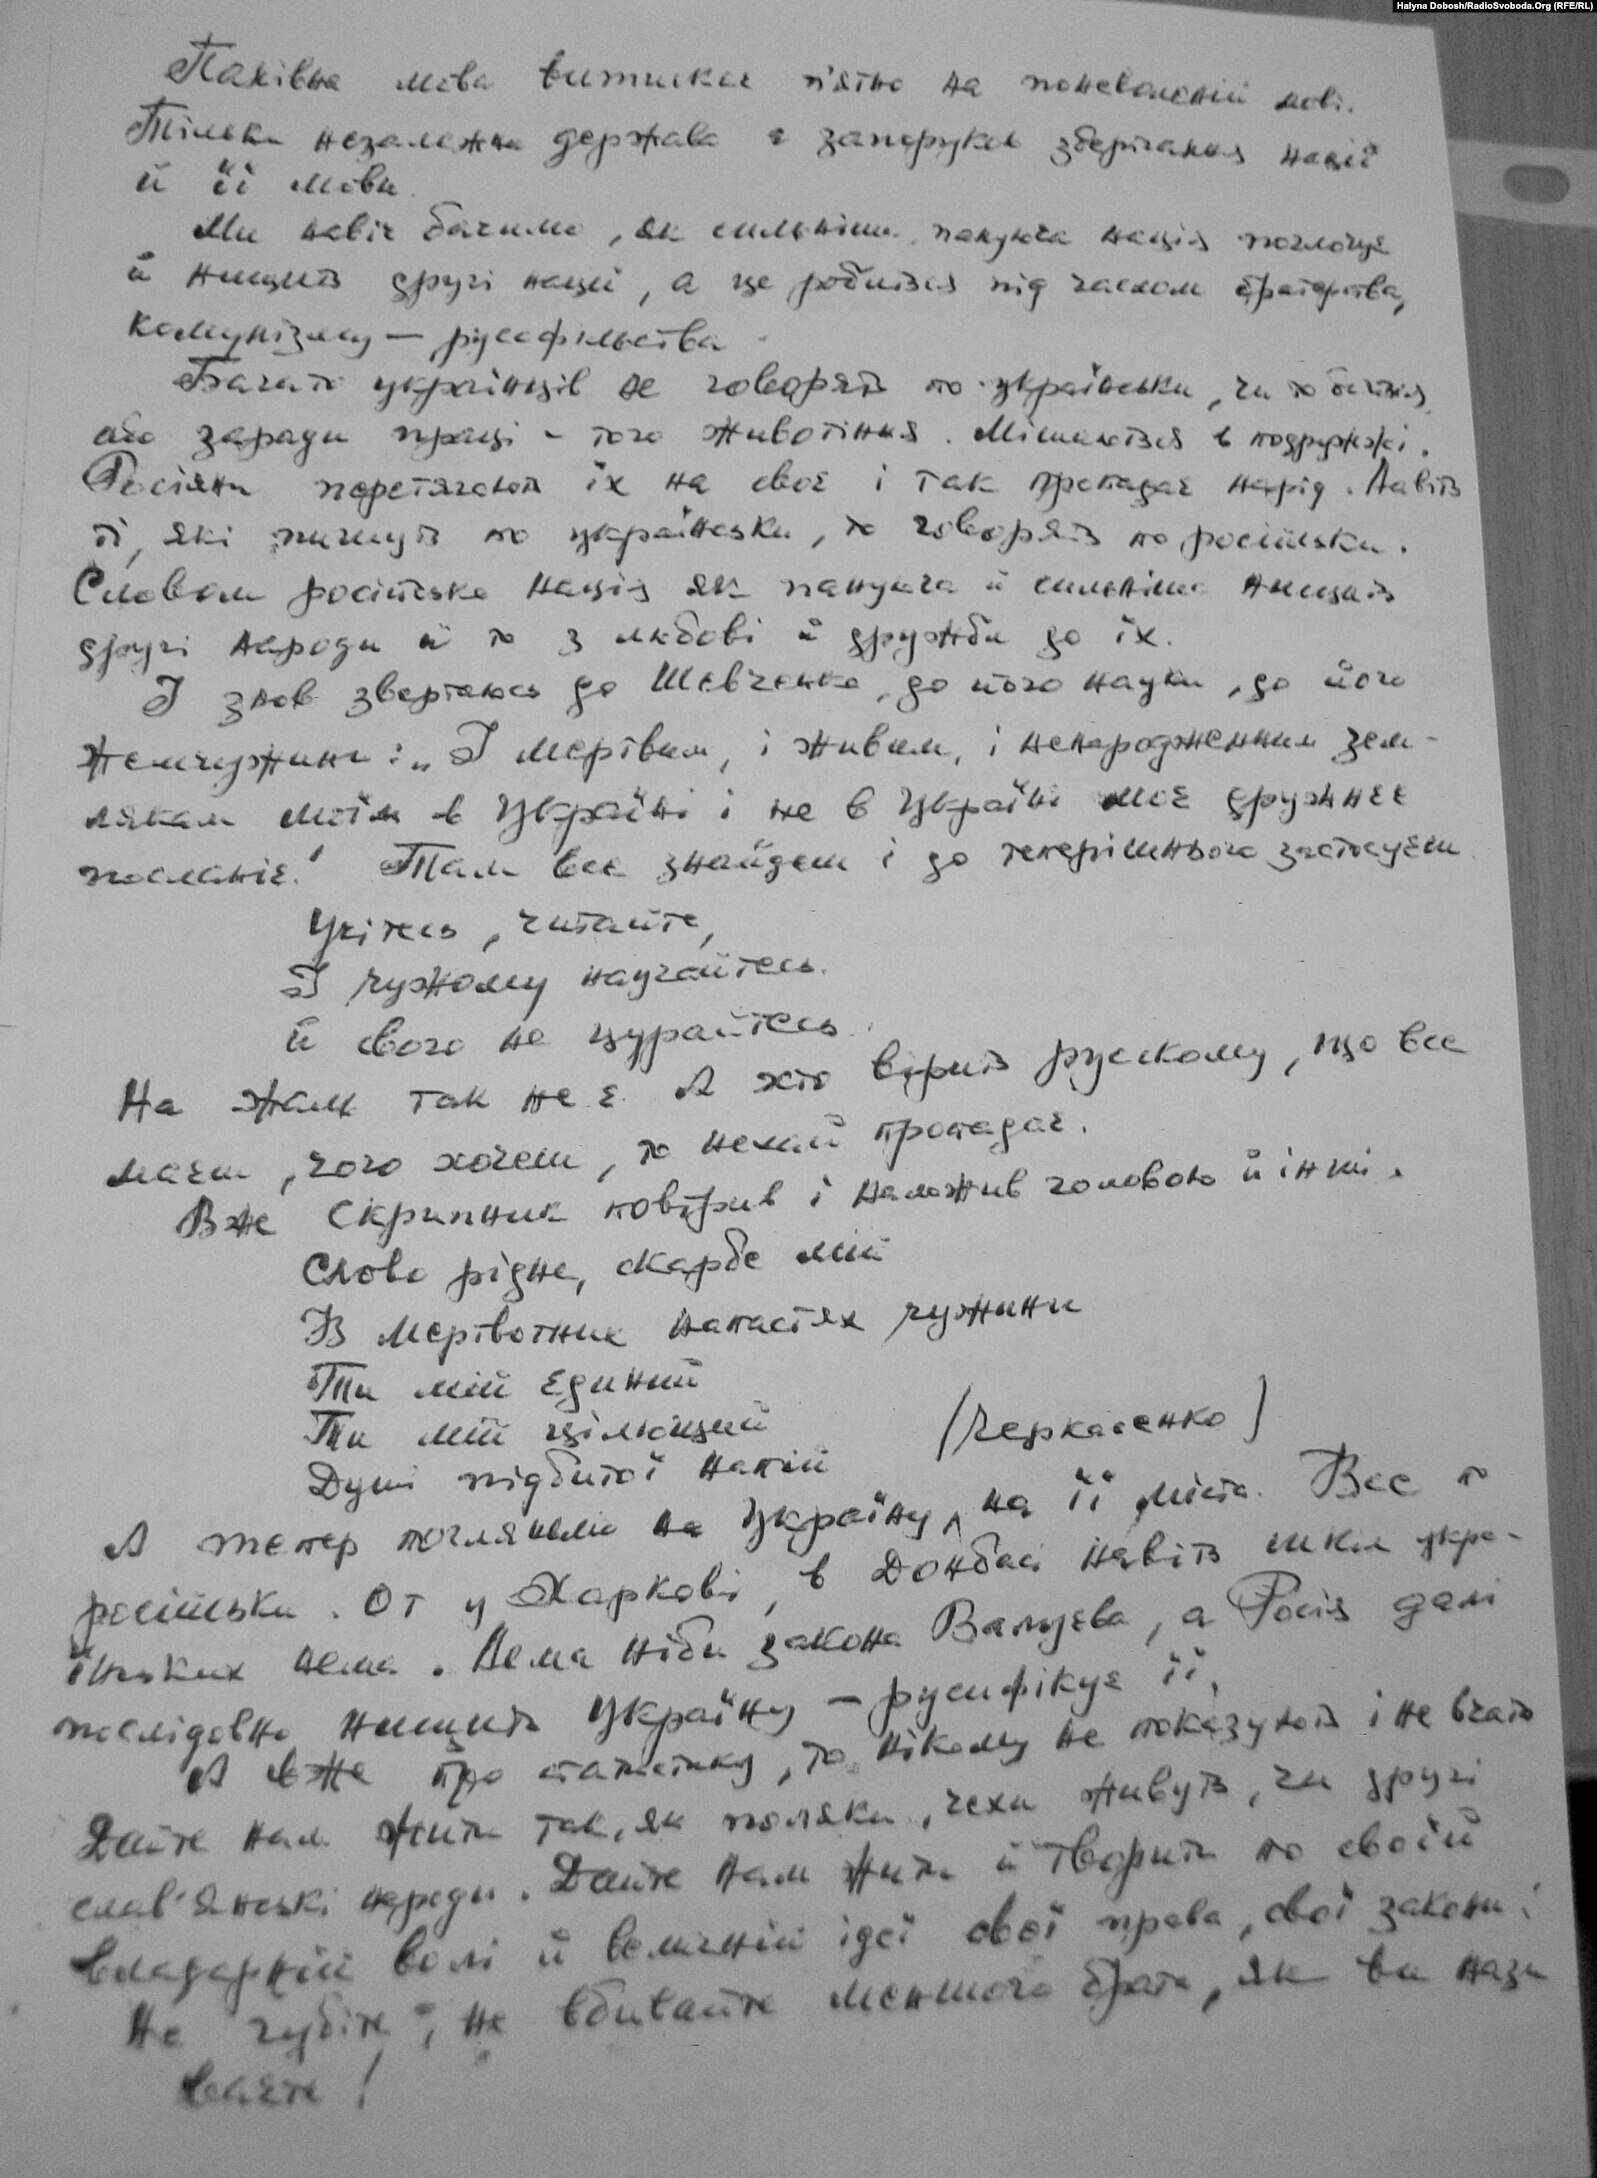 Halyna Dobosh/RadioSvoboda.Org (RFE/RL)
Панівна мова витискає п'ятно на поневоленій мові.
Тільки незалежна держава є запорукою зберігання нації
й її мови.
Ми навіч бачимо, як сильніша, пануюча нація поглочує
й нищить другі нації, а це робиться під гаслом братерства,
комунізму — русофільства.
Багато українців не говорять по українськи, чи то бояться,
або заради праці - того животіння. Мішаються в подружжі.
Росіяни перетягають їх на своє і так пропадає нарід. Навіть
ті, які пишуть по українськи, то говорять по російськи.
Словом російська нація як пануюча й сильніша нищить
другі народи й то з любові й дружби до їх.
І знов звертаюсь до Шевченка, до його науки, до його
жемчужини: „І мертвим, і живим, і ненародженним зем-
лякам моїм в Україні і не в Україні моє дружнеє
посланіє." Там все знайдеш і до теперішнього застосуєш.
Учітесь, читайте,
І чужому научайтесь.
й свого не цурайтесь.
На жаль так не є. А хто вірить рускому, що все
маєш, чого хочеш, то нехай пропадає.
Вже Скрипник повірив і наложив головою й інші.
Слово рідне, скарбе мій
В мертвотних напастях чужини
Ти мій єдиний
Ти мій цілющий
Душі підбитої напій
(Черкасенко)
А тепер погляньмо на Україну, на її міста. Все по
російськи. От у Харкові, в Донбасі навіть шкіл укра-
їнських нема. Нема ніби закона Валуєва, а Росія далі
послідовно нищить Україну — русифікує її.
А вже про статистику, то нікому не показують і не вчать
Дайте нам жити так, як поляки, чехи живуть, чи другі
слав'янські народи. Дайте нам жити й творити по своїй
владарній волі й величній ідеї свої права, свої закони!
Не губіть, не вбивайте меншого брата, як ви нази
ваєте!